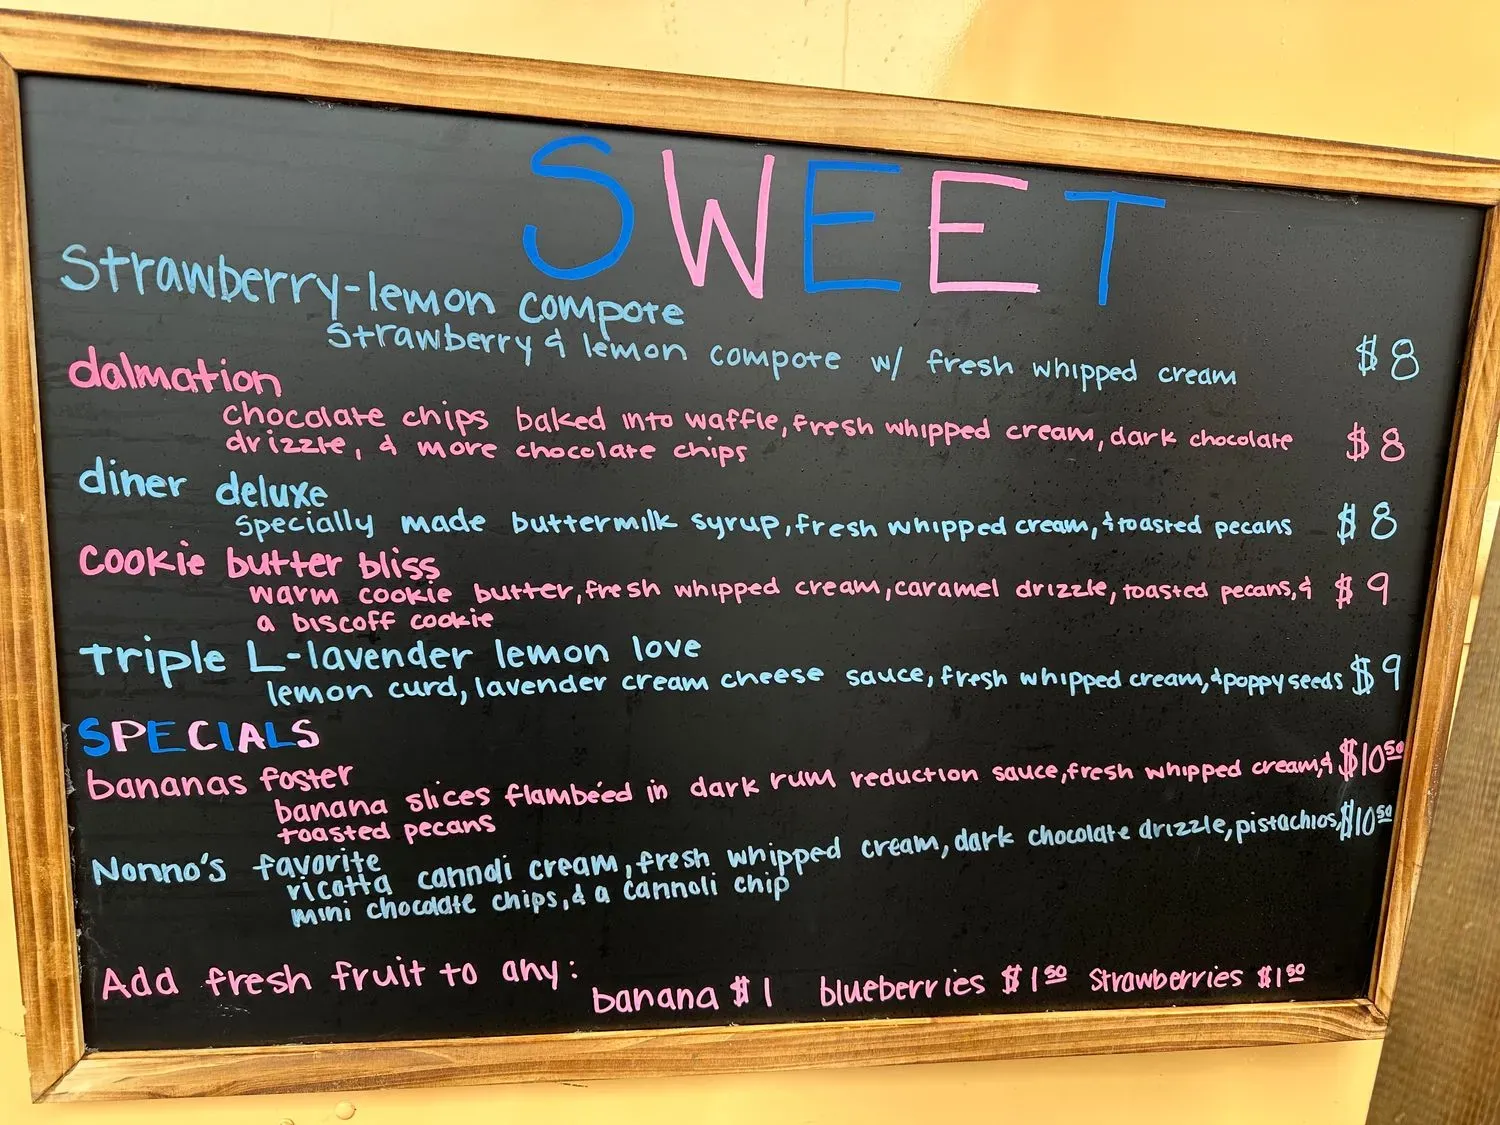 SWEET
Strawberry-lemon compote
strawberry & lemon compote w/ fresh whipped cream $8
dalmation
chocolate chips baked into waffle, fresh whipped cream, dark chocolate $8
drizzle, & more chocolate chips
diner deluxe
specially made buttermilk syrup, fresh whipped cream, & toasted pecans $8
cookie butter bliss
warm cookie butter, fresh whipped cream, caramel drizzle, toasted pecans, & $9
a biscoff cookie
Triple L-lavender lemon love
lemon curd, lavender cream cheese sauce, fresh whipped cream, & poppyseeds $9
SPECIALS
bananas foster
banana slices flambéed in dark rum reduction sauce, fresh whipped cream, & $10.50
toasted pecans
Nonno's favorite
ricotta cannoli cream, fresh whipped cream, dark chocolate drizzle, pistachios, $10.50
mini chocolate chips, & a cannoli chip
Add fresh fruit to any:
banana $1 blueberries $1.50 strawberries $1.50